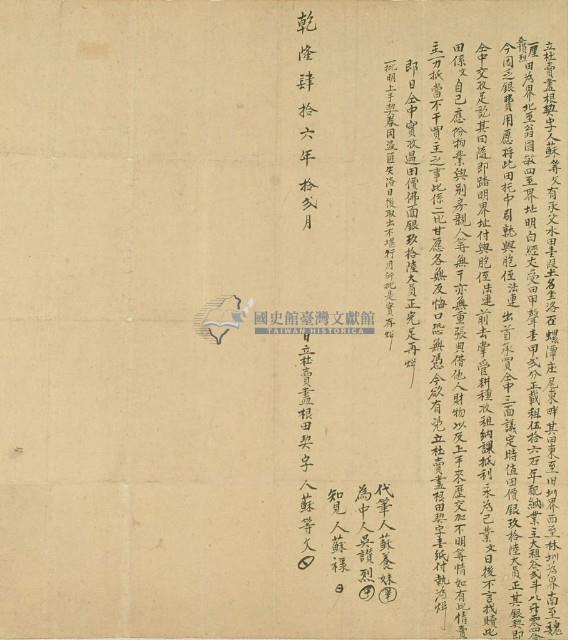 立杜賣盡根契字人蘇等文有承父水田壹段坐名坐落石螺潭庄尾東畔其田東至旧圳界西至林圳為界南至魏
厘田為界北至翁園敏四至界址明白經丈受田甲聲壹甲弍分正載租伍拾六石年配納業主大租叁弍斗八升零四合
今因乏銀費用應将此田托中引就與胞侄法連出首承買仝中三面議定時值田價銀玖拾陸大員正其銀契即
仝中交收足訖其田隨即踏明界址付與胞侄法連前去掌管耕種收租納課抵利永為己業文日後不言找贖此
田係文自己應份物業與別房親人等無干亦無重張典借他人財物以及上手來歷交加不明等情如有此情賣
主一力抵當不干買主之事此係二比甘愿各無反悔口恐無憑今欲有憑立杜賣盡根田契字壹紙付執為炤
即日仝中實收過田價佛面銀玖拾陸大員正完足再炤
一批明上手契券因盜匪失落日後取出不堪行用併批是實存炤
乾隆肆拾六年拾弍月
日立杜賣盡根田契字人蘇等文
代筆人蘇養妹
為中人吳讚烈
知見人蘇祿
國史館臺灣文獻館
TAIWAN HISTORICA